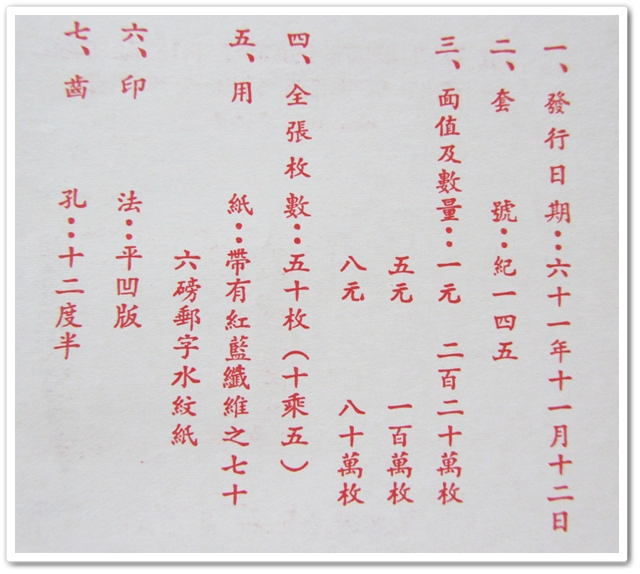 一、發行日期：六十一年十一月十二日
二、套號：紀一四五
三、面值及數量：一元 二百二十萬枚
五元 一百萬枚
八元 八十萬枚
四、全張枚數：五十枚（十乘五）
五、用紙：帶有紅藍纖維之七十
六磅郵字水紋紙
六、印法：平凹版
七、齒孔：十二度半